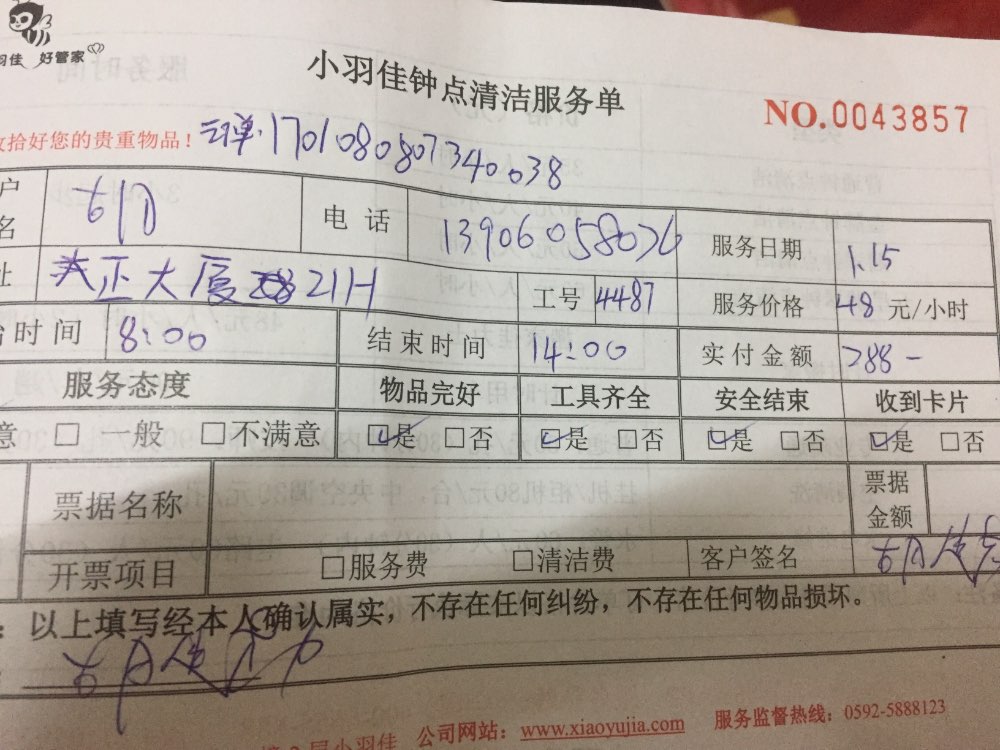 羽佳 好管家
小羽佳钟点清洁服务单
NO.0043857
收拾好您的贵重物品！ 1701080807340038
户名 电话 13906058036 服务日期 1.15
址 大正大厦 21H 工号 4487 服务价格 48 元/小时
始时间 8:00 结束时间 14:00 实付金额 288-
服务态度 物品完好 工具齐全 安全结束 收到卡片
意 □ 一般 □不满意 ☑是 □否 ☑是 □否 ☑是 □否 ☑是 □否
票据名称 票据金额
开票项目 □服务费 □清洁费 客户签名
：以上填写经本人确认属实，不存在任何纠纷，不存在任何物品损坏。
楼小羽佳 公司网站：www.xiaoyujia.com 服务监督热线：0592-5888123